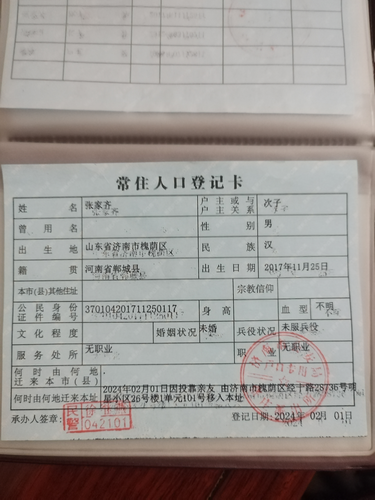 常住人口登记卡
姓名 张家齐 户主或与户主关系 次子
曾用名 性别 男
出生地 山东省济南市槐荫区 民族 汉
籍贯 河南省郸城县 出生日期 2017年11月25日
本市(县)其他住址 宗教信仰
公民身份证件编号 370104201711250117 身高 血型 不明
文化程度 婚姻状况 未婚 兵役状况 未服兵役
服务处所 无职业 职业 无职业
何时由何地迁来本市(县)
何时由何地迁来本址 2024年02月01日因投靠亲友 由济南市槐荫区经十路28736号
小区26号楼1单元101号移入本址
承办人签章: 登记日期: 2024年02月01日
民警
042101